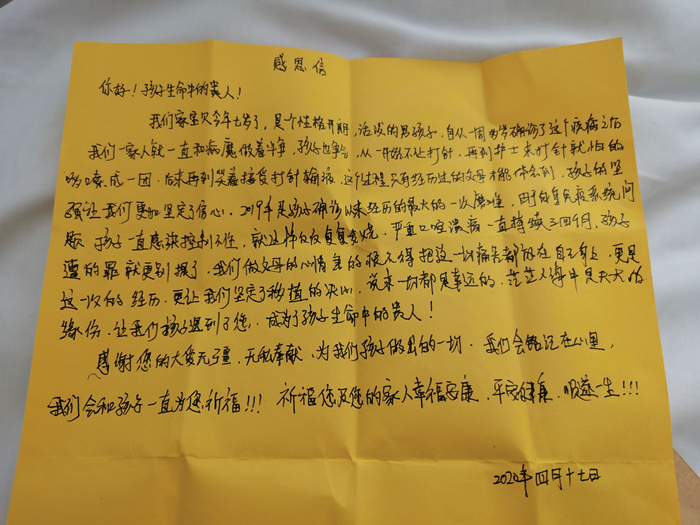 感恩信
你好!孩子生命中的贵人!
我们家宝贝今年七岁了,是个性格开朗,活泼的男孩子,自从一周岁确诊了这个疾病之后
我们一家人就一直和病魔做着斗争,孩子也争气,从一开始不让打针,再到护士来打针就怕的
哆嗦成一团,后来再到笑着接受打针输液,这个过程只有经历过的父母才能体会到,孩子的坚
强让我们更加坚定了信心,2019年是孩子确诊以来经历的最大的一次磨难,由于自身免疫系统问
题,孩子一直感染控制不住,就这样反反复复发烧,严重口腔溃疡一直持续了四个月,孩子
遭的罪就更别提了,我们做父母的心情急的恨不得把这一切痛苦都放在自己身上,更是
这一次的经历,更让我们坚定了移植的决心,说来一切都是幸运的,茫茫人海中是天大的
缘份,让我们孩子遇到了您,成为了孩子生命中的贵人!
感谢您的大爱无疆,无私奉献,为我们孩子做出的一切,我们会铭记在心里,
我们会和孩子一直为您祈福!!!祈福您及您的家人幸福安康,平安健康,顺遂一生!!!
2020年四月十七日